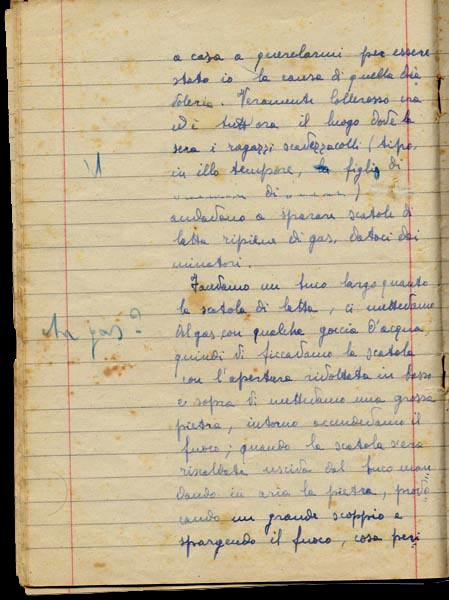 a casa a querelarmi per essere
stato io la causa di quella dia
voleria. Veramente Collerosso era
ed è tutt'ora il luogo dove la
sera i ragazzi scavezzacolli (tipo,
in illo tempore, figlio di
di
andavano a sparare scatole di
latta ripiene di gas, datoci dai
minatori.
Facevamo un buco largo quanto
la scatola di latta, ci mettevamo
gas?
il gas con qualche goccia d'acqua,
quindi vi ficcavamo la scatola
con l'apertura rivoltata in basso
e sopra vi mettevamo una grossa
pietra, intorno accendevamo il
fuoco; quando la scatola s'era
riscaldata usciva dal buco man
dando in aria la pietra, provo
cando un grande scoppio e
spargendo il fuoco, cosa peri